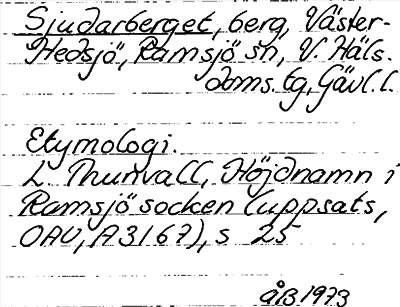 Sjudarberget, berg, Väster-
Hedsjö, Ramsjö sn, V. Häls.
doms. tg, Gävl. l.
Etymologi.
L Thunvall, Höjdnamn i
Ramsjö socken (uppsats,
OAU, A3167), s 25
ÅB 1973